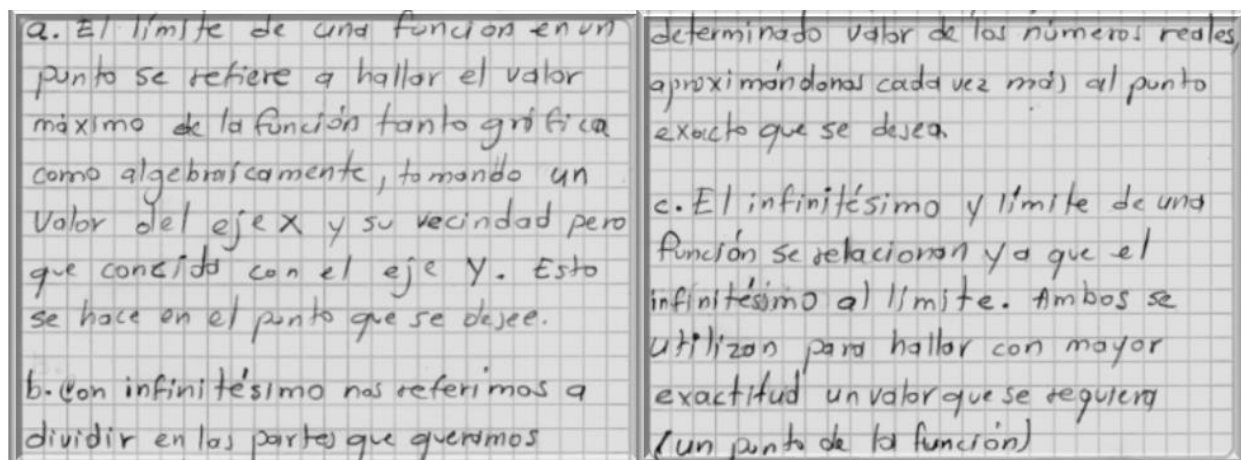 a. El límite de una función en un
punto se refiere a hallar el valor
máximo de la función tanto gráfica
como algebraícamente, tomando un
valor del eje x y su vecindad pero
que concida con el eje y. Esto
se hace en el punto que se desee.
b. Con infinitésimo nos referimos a
dividir en las partes que queramos
determinado valor de los números reales,
aproximándonos cada vez más al punto
exacto que se desea.
c. El infinitésimo y límite de una
función se relacionan ya que el
infinitésimo al límite. Ambos se
utilizan para hallar con mayor
exactitud un valor que se requiera
(un punto de la función)